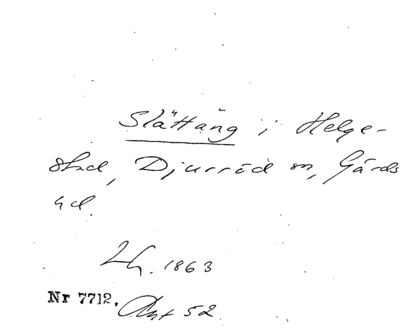 Slättäng i Helge-
stad, Djurröd sn, Gärds
hd.
Lh. 1863
Nr 7712. Ant 52